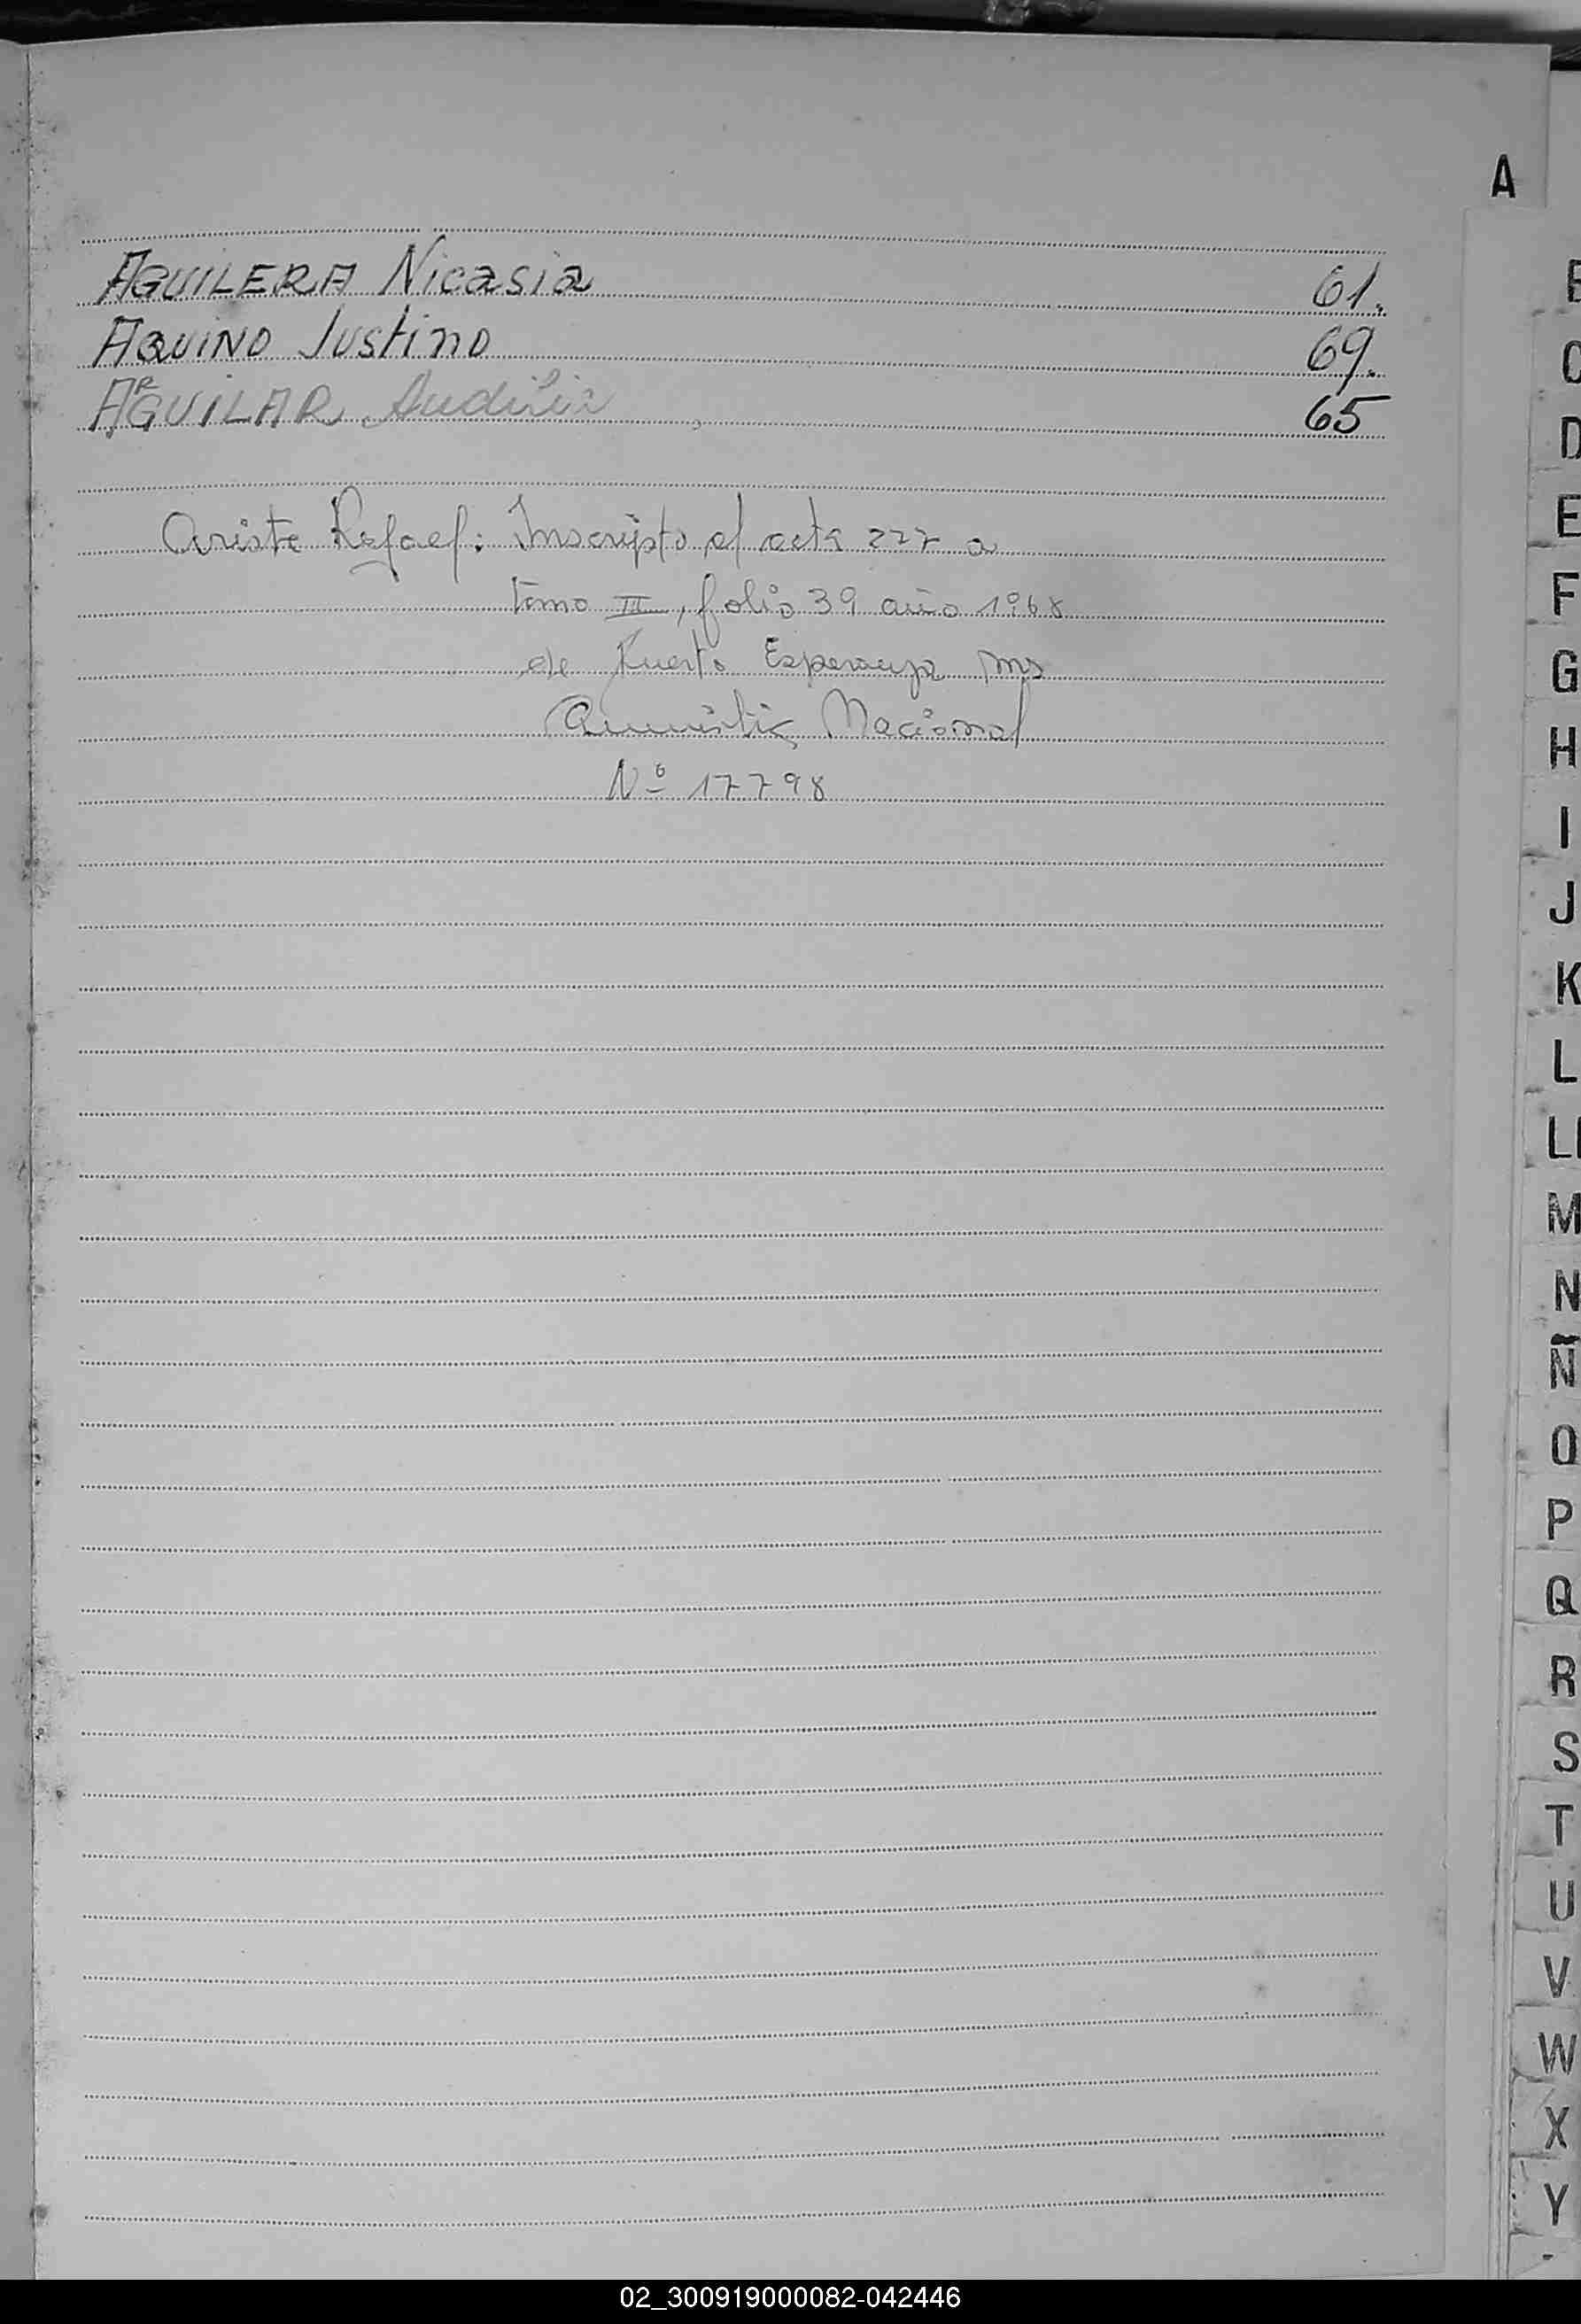 A
AGUILERA Nicasia 61.
AQUINO Justino 69.
AGUILAR 65
Ariste Rafael: Inscripto al acta 277 a
tomo III, folio 39 año 1968
de Puerto Esperanza Ms
Amnistia Nacional
Nº 17798
C
D
E
F
G
H
I
J
K
L
LL
M
N
Ñ
O
P
Q
R
S
T
U
V
W
X
Y
02_300919000082-042446